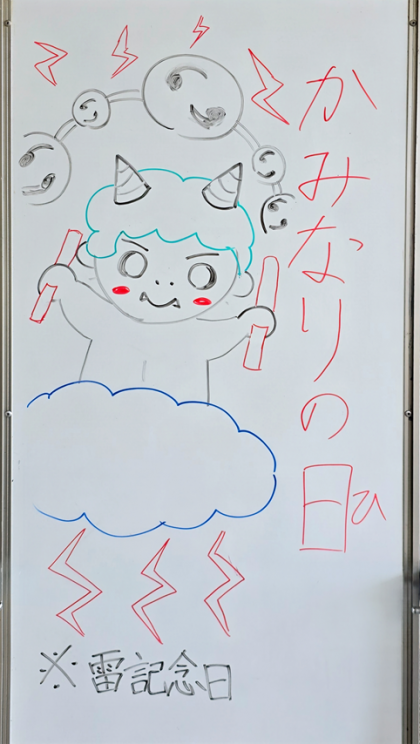 かみなりの日
ひ
※雷記念日